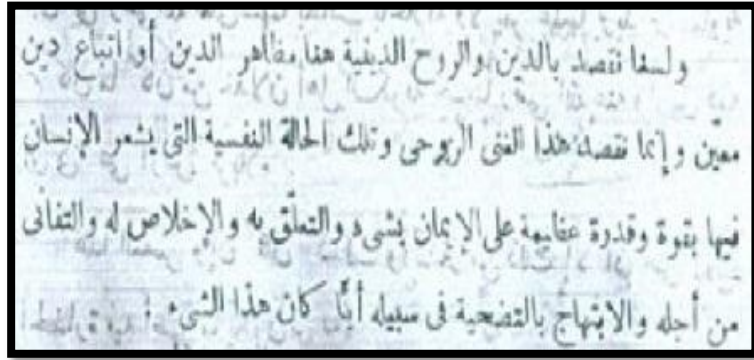 ولسنا نقصد بالدين والروح الدينية هنا مظاهر الدين أو اتباع دين
معين وإنما نقصد هذا الغنى الروحى وتلك الحالة النفسية التى يشعر الإنسان
فيها بقوة وقدرة عظيمة على الإيمان بشىء والتعلّق به والإخلاص له والتفانى
من أجله والابتهاج بالتضحية فى سبيله أيًّا كان هذا الشىء .